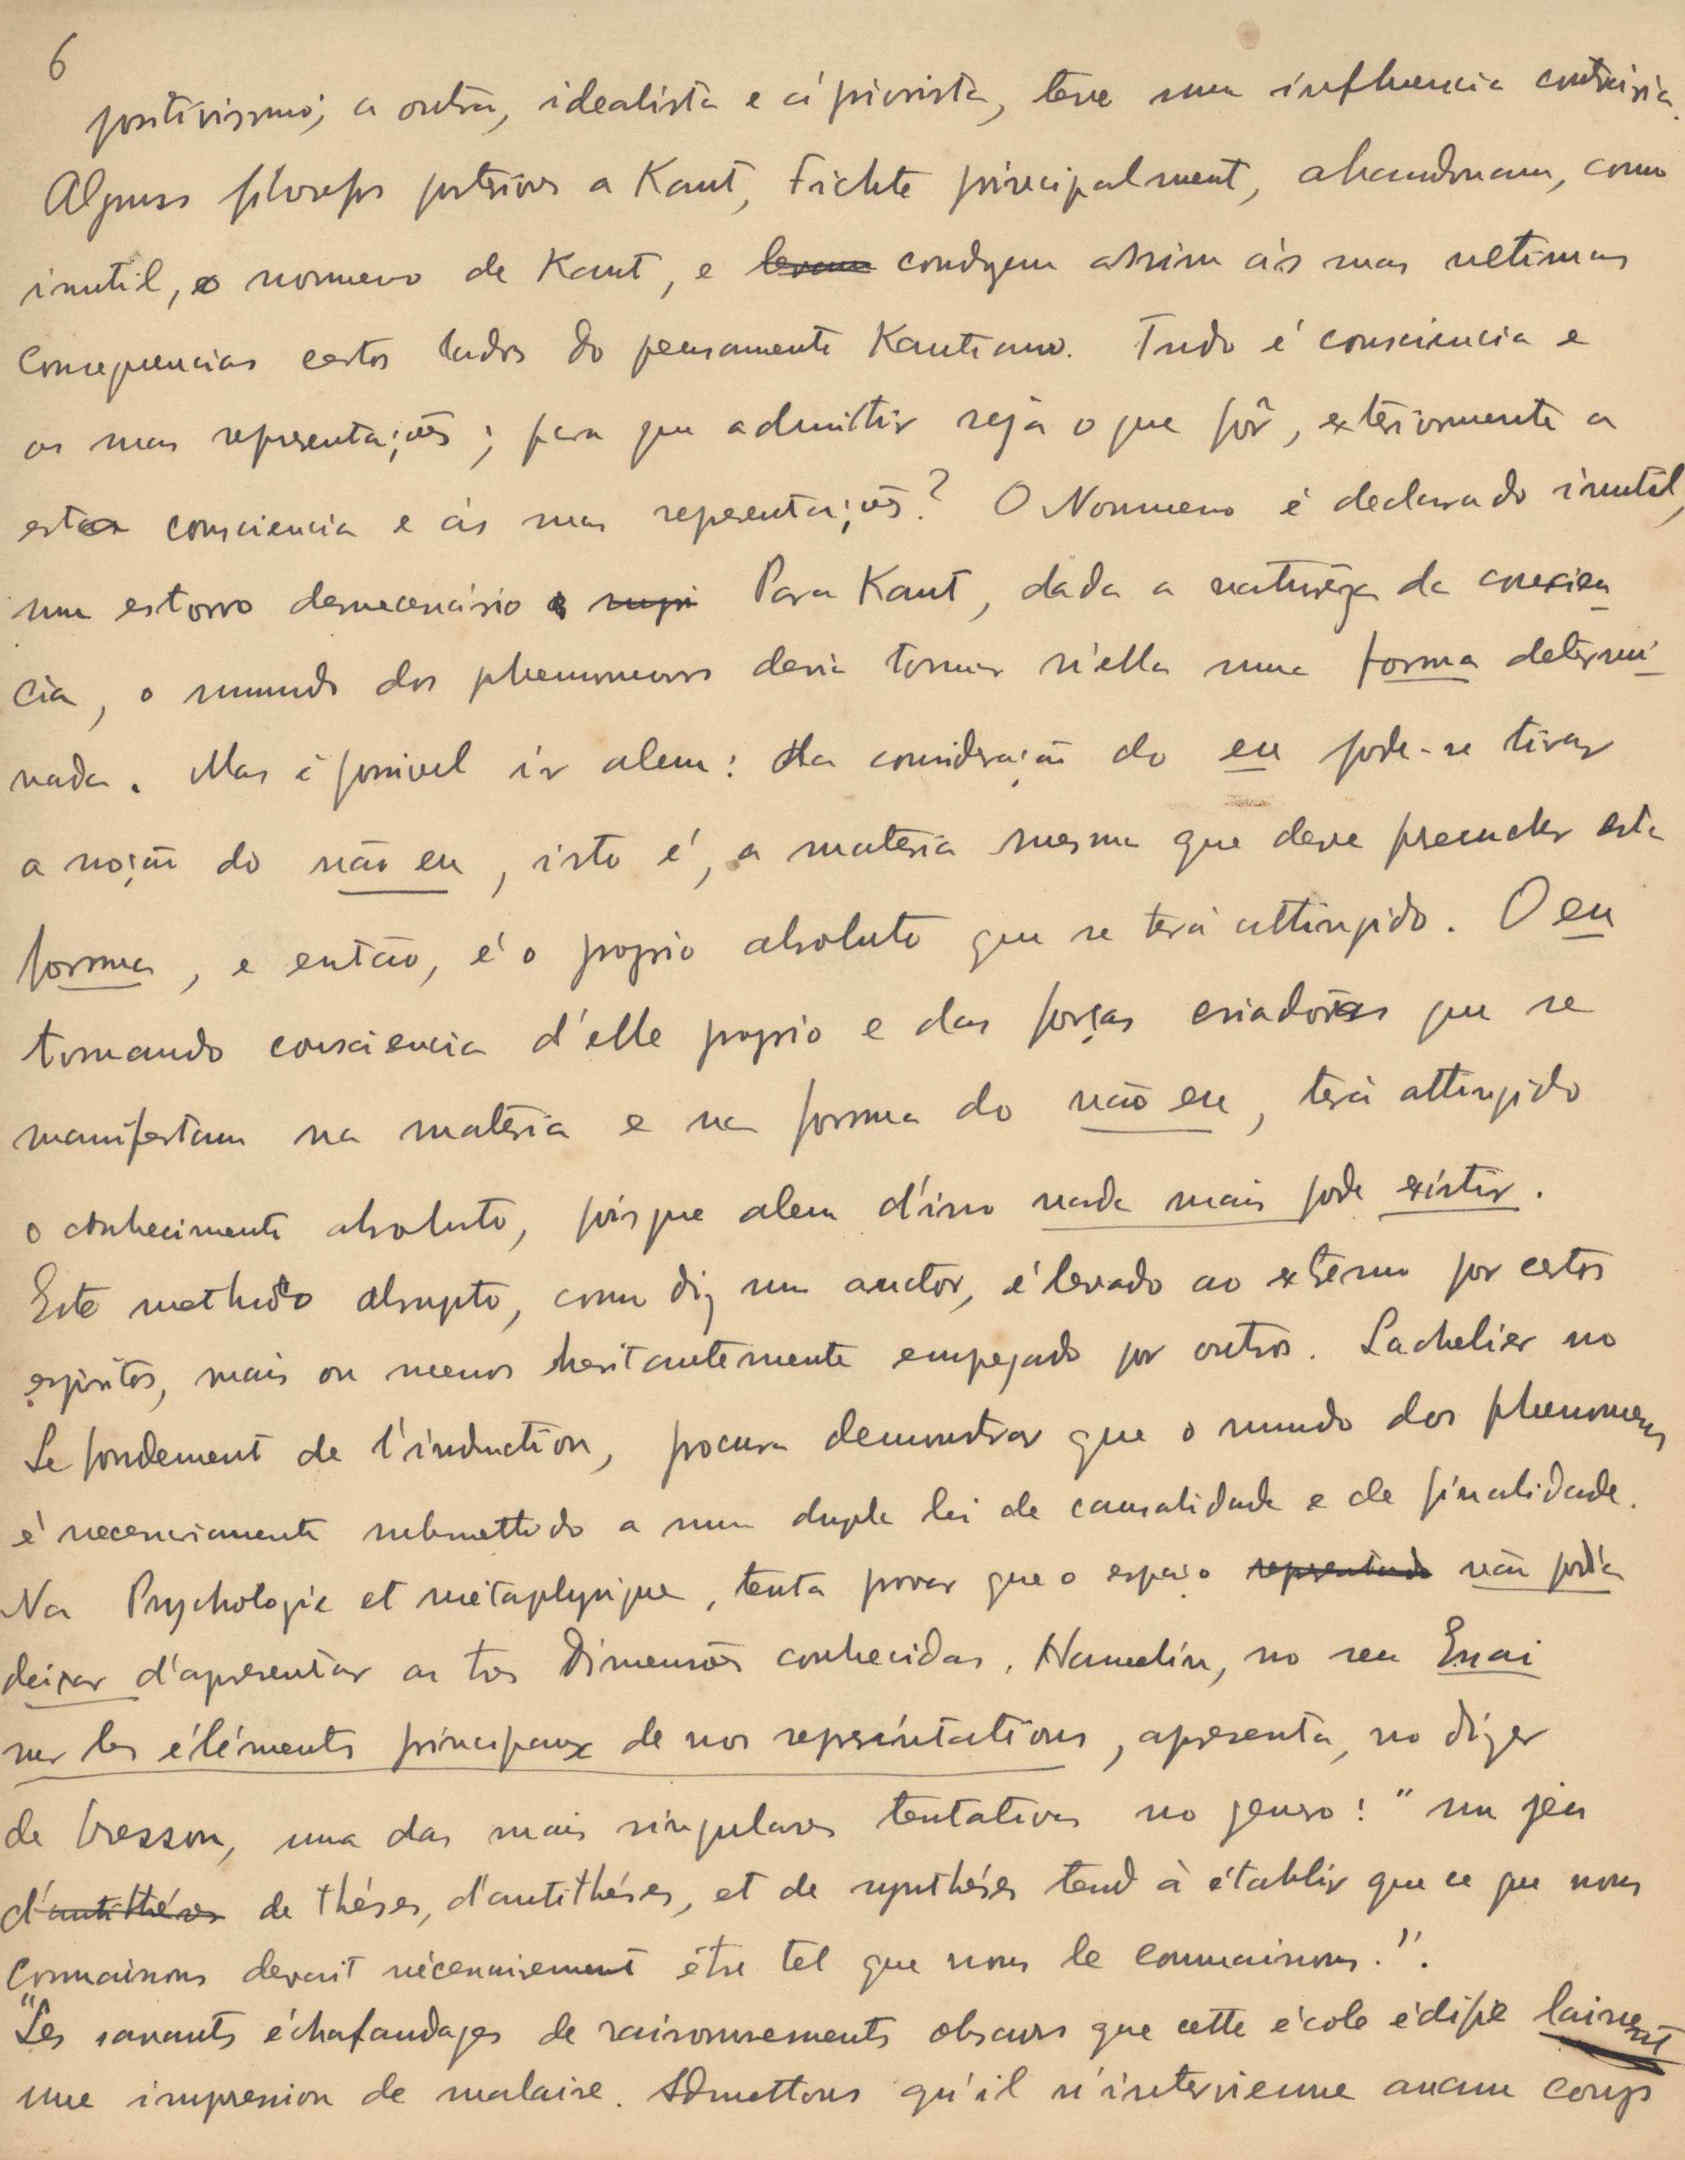 6
positivismo; a outra, idealista e á priorista, teve uma influencia contrária.
Alguns filosofos posteriores a Kant, Fichte principalment, abandonam, como
inutil, o noumeno de Kant, e levam conduzem assim ás suas ultimas
consequencias certos lados do pensamento Kantiano. Tudo é consciencia e
as suas representações; para que admittir seja o que fôr, exteriormente a
esta consciencia e ás suas representações? O Noumeno é declarado inutil,
um estorvo desnecessário Para Kant, dada a natureza da conscien
cia, o mundo dos phenomenos devia tomar n'ella uma forma determi-
nada. Mas é possivel ir alem: da consideração do eu pode-se tirar
a noção do não eu, isto é, a materia mesma que deve preencher esta
forma, e então, é o proprio absoluto que se terá attingido. O eu
tomando consciencia d'elle proprio e das forças criadoras que se
manifestam na materia e na forma do não eu, terá attingido
o conhecimento absoluto, pois que alem d'isso nada mais pode existir.
Este methodo abrupto, como diz um auctor, é levado ao extremo por certos
espiritos, mais ou menos hesitantemente empregado por outros. Lachelier no
Le fondement de l'induction, procura demonstrar que o mundo dos phenomenos
é necessariamente submettido a uma dupla lei de causalidade e de finalidade.
Na Psychologie et métaphysique, tenta provar que o espaço representado não podia
deixar d'apresentar as tres dimensões conhecidas. Hamelin, no seu Essai
sur les éléments principaux de nos représentations, apresenta, no dizer
de Cresson, uma das mais singulares tentativas no genero: "un jeu
d'antithéses de théses, d'antithéses, et de synthéses tend à établir que ce que nous
connaissons devait nécessairement être tel que nous le connaissons.".
"Les savants échafaudages de raisonnements obscurs que cette école édifie laissent
une impression de malaise. Admettons qu'il n'intervienne aucun coups